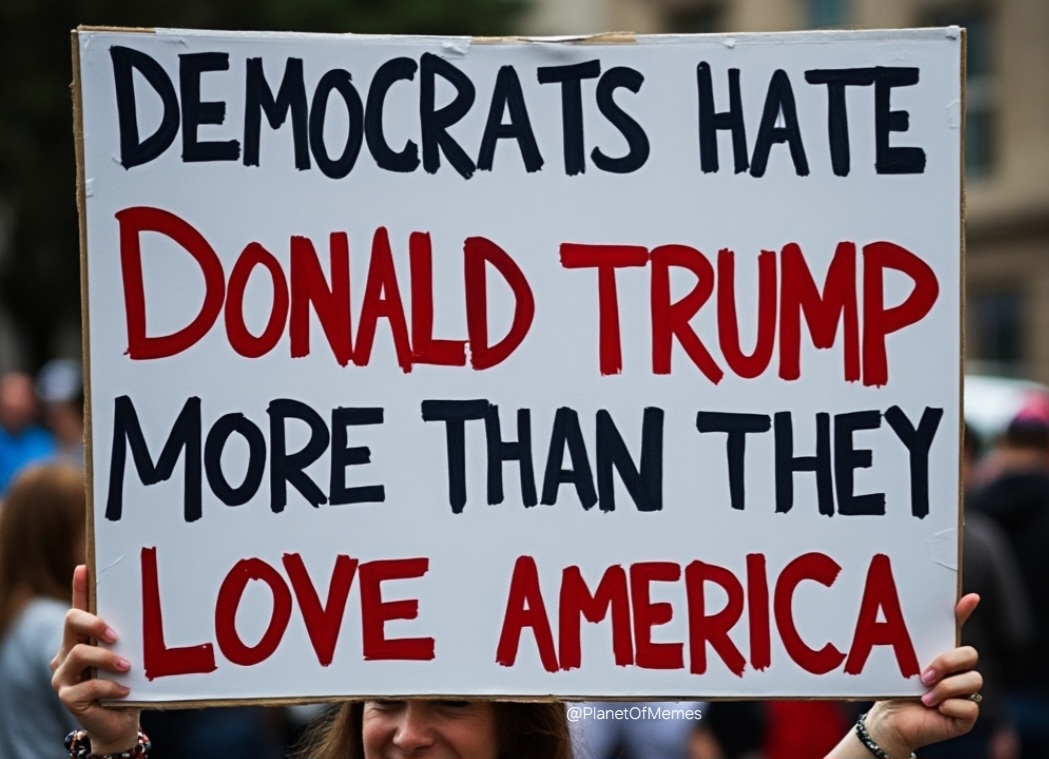 DEMOCRATS HATE
DONALD TRUMP
MORE THAN THEY
LOVE AMERICA
@PlanetOfMemes